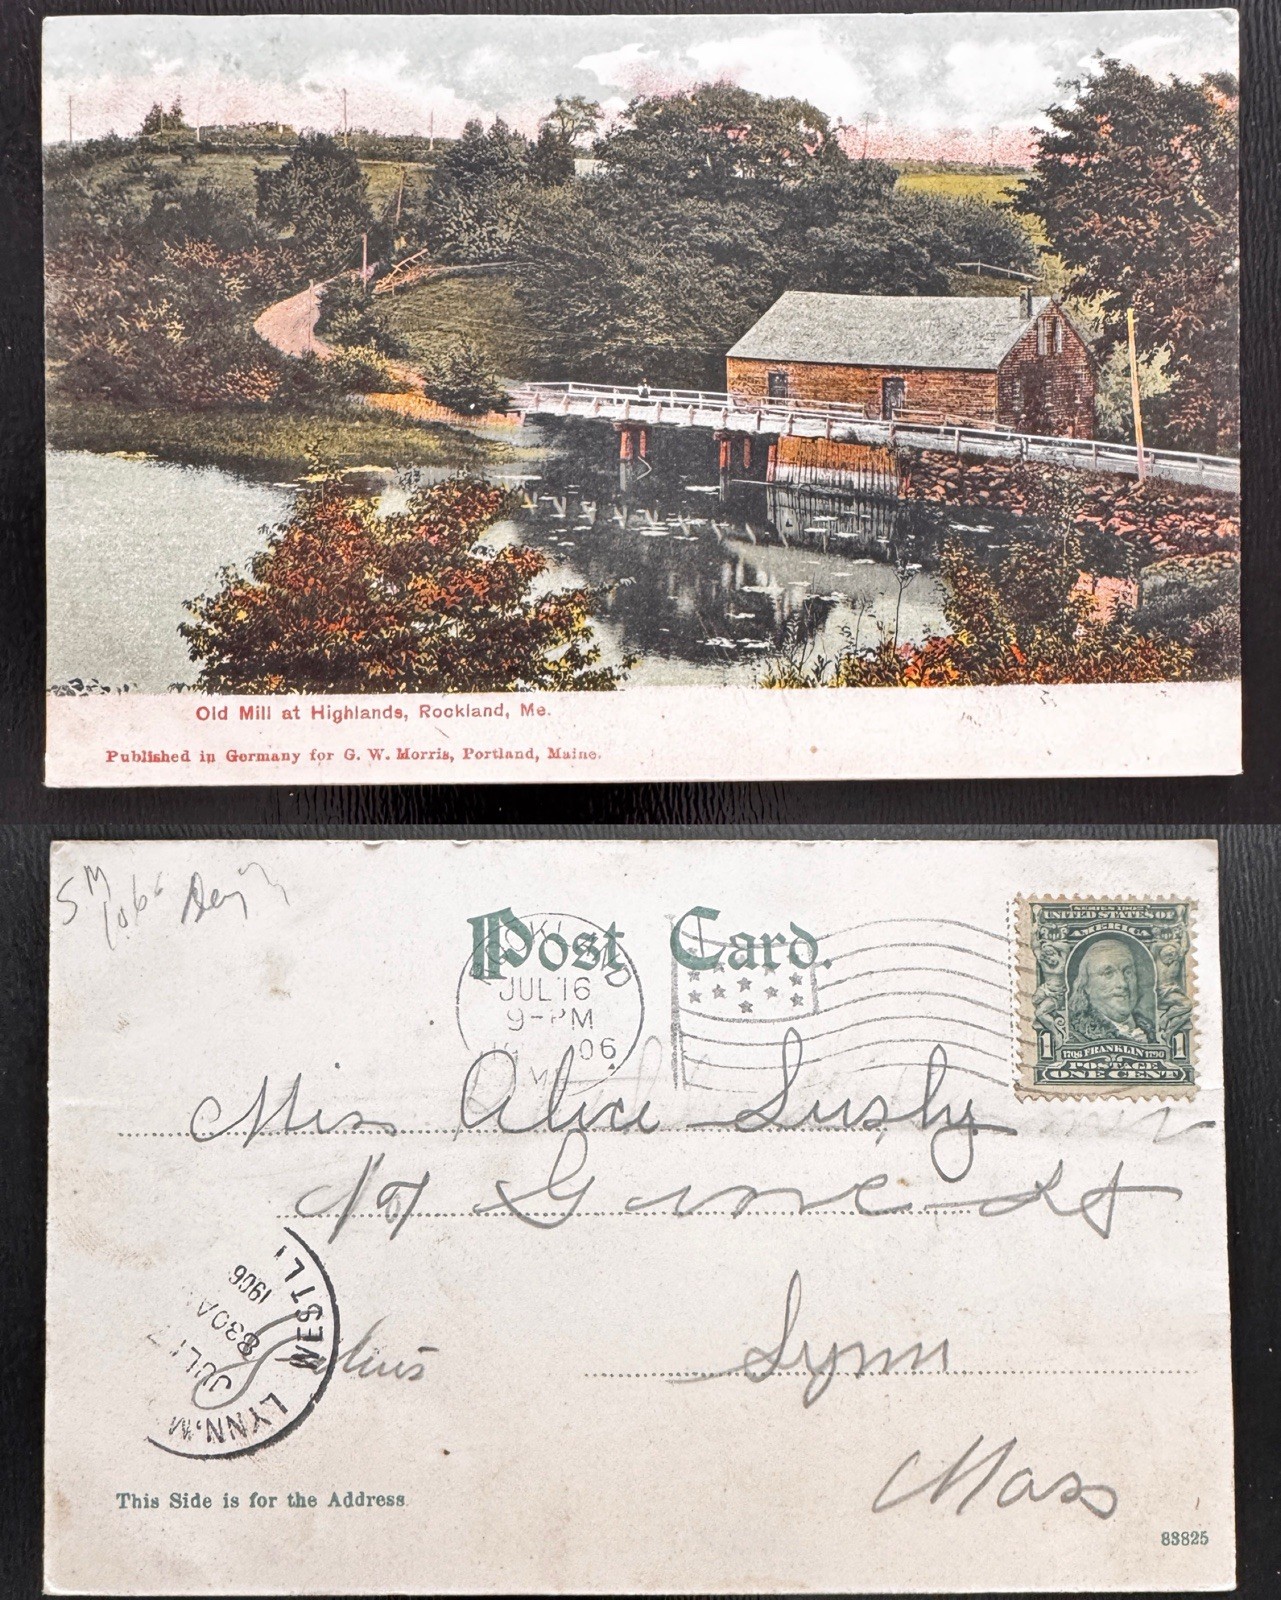 Old Mill at Highlands, Rockland, Me.
Published in Germany for G. W. Morris, Portland, Maine.
Post Card.
JUL 16
9-PM
06
ME.
SERIES 1902
UNITED STATES OF
AMERICA
1706 FRANKLIN 1790
1 POSTAGE 1
ONE CENT
Miss Alice Lusby
St
Lynn
Mass
WEST LYNN, M
JUL 17
830A
1906
This Side is for the Address.
83825